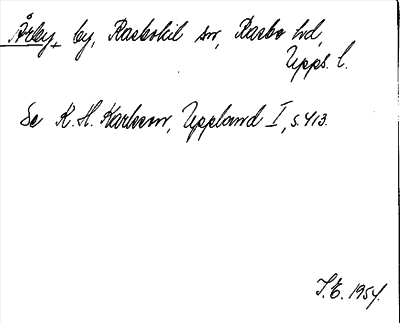 Årby, by, Rasbokil sn, Rasbo hd,
Upps. l.
Se K. H. Karlsson, Uppland I, s. 413.
T.E. 1954.